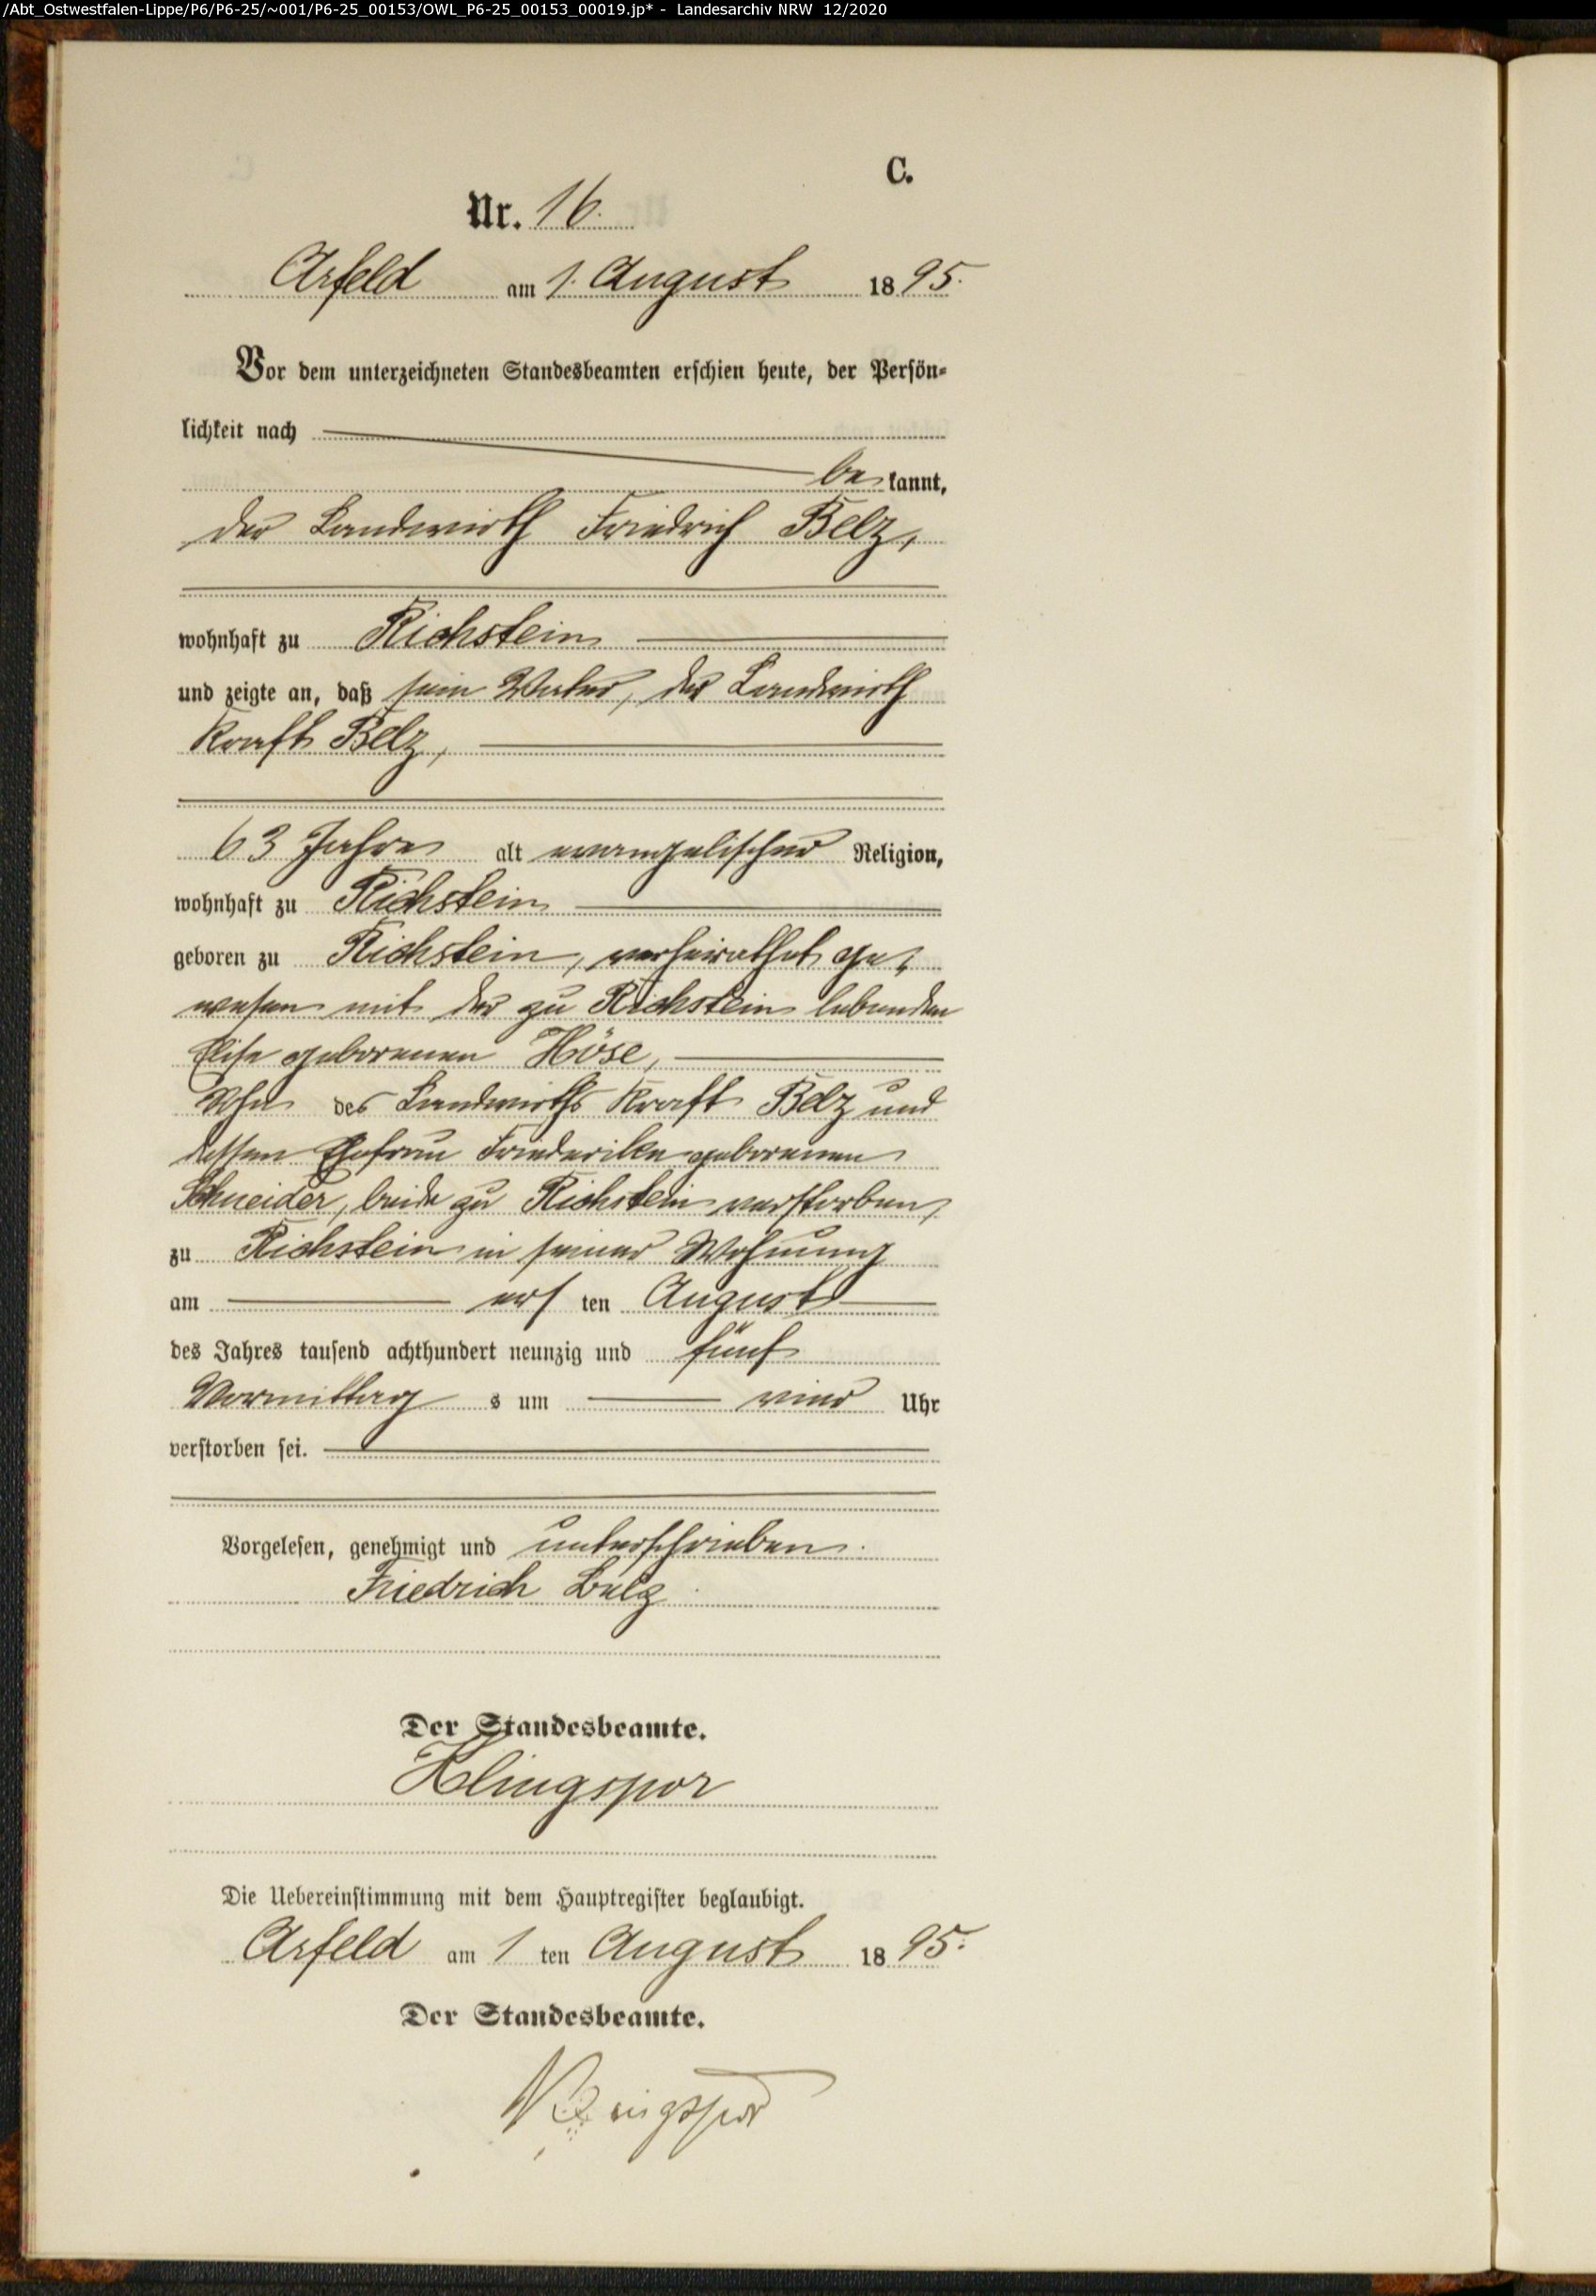 /Abt_Ostwestfalen-Lippe/P6/P6-25/~001/P6-25_00153/OWL_P6-25_00153_00019.jp* - Landesarchiv NRW 12/2020
C.
Nr. 16.
Arfeld am 1. August 1895.
Vor dem unterzeichneten Standesbeamten erschien heute, der Persön-
lichkeit nach
be kannt,
der Landwirth Friedrich Belz,
wohnhaft zu Richstein
und zeigte an, daß sein Vater, der Landwirth
Kraft Belz,
63 Jahre alt evangelischer Religion,
wohnhaft zu Richstein
geboren zu Richstein, verheirathet ge-
wesen mit der zu Richstein lebenden
Elise geborenen Höse,
Sohn des Landwirths Kraft Belz und
dessen Ehefrau Friederike geborenen
Schneider, beide zu Richstein verstorben,
zu Richstein in seiner Wohnung
am ersten August
des Jahres tausend achthundert neunzig und fünf
Vormittag s um vier Uhr
verstorben sei.
Vorgelesen, genehmigt und unterschrieben.
Friedrich Belz
Der Standesbeamte.
Klingspor
Die Uebereinstimmung mit dem Hauptregister beglaubigt.
Arfeld am 1 ten August 1895.
Der Standesbeamte.
Klingspor